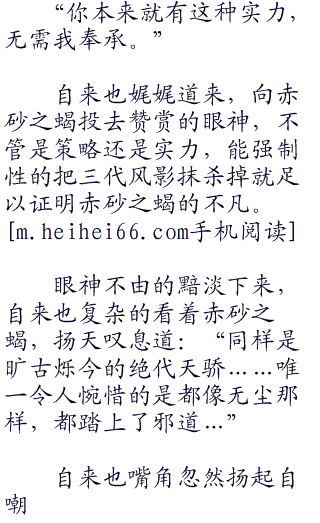 “你本来就有这种实力，
无需我奉承。”
自来也娓娓道来，向赤
砂之蝎投去赞赏的眼神，不
管是策略还是实力，能强制
性的把三代风影抹杀掉就足
以证明赤砂之蝎的不凡。
[m.heihei66.com手机阅读]
眼神不由的黯淡下来，
自来也复杂的看着赤砂之
蝎，扬天叹息道：“同样是
旷古烁今的绝代天骄……唯
一令人惋惜的是都像无尘那
样，都踏上了邪道…”
自来也嘴角忽然扬起自
嘲